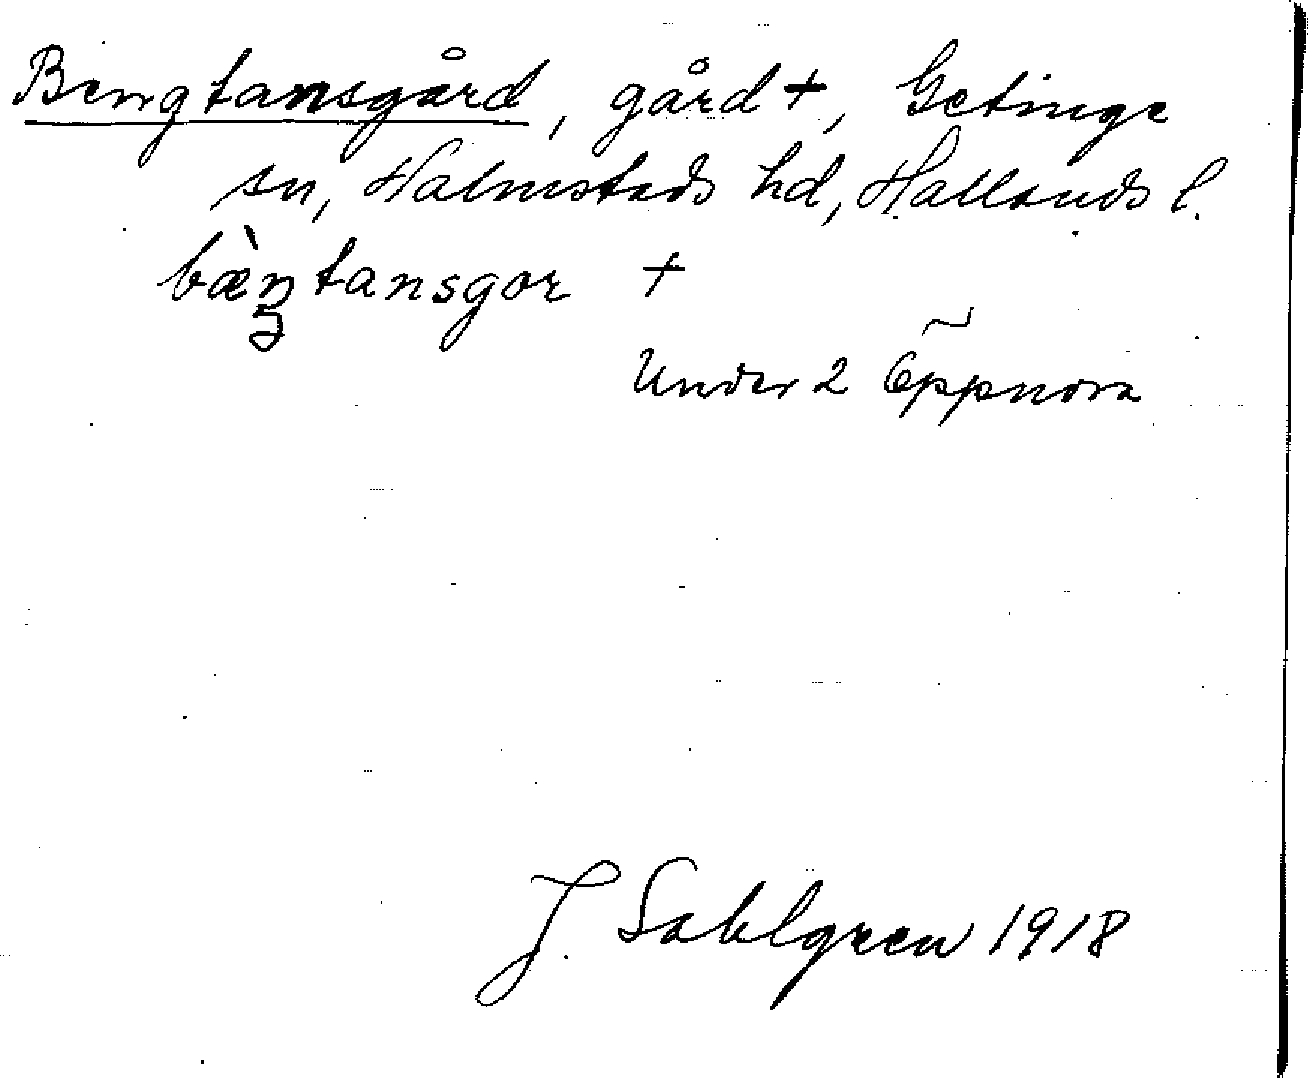 Bengtansgård, gård +, Getinge
sn, Halmstads hd, Hallands l.
bæ̀ŋtansgor +
Under 2 Öppnora
J. Sahlgren 1918